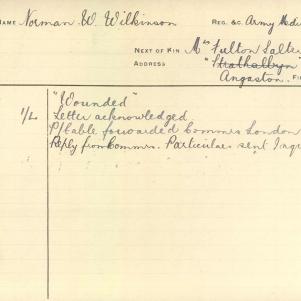 NAME Norman W. Wilkinson REG. &c Army Medi
NEXT OF KIN Mrs Fulton Salte
ADDRESS "Strathalbyn"
Angaston. FI
"Wounded"
Letter acknowledged.
P/Cable forwarded Commrs London
Reply from Commrs. Particulars sent Inqr